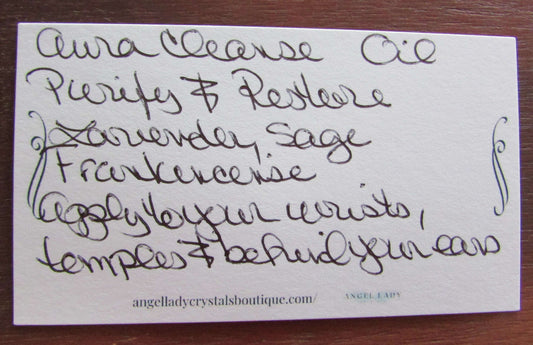 Aura Cleanse Oil
Purify & Restore
Lavender, Sage
Frankincense
Apply to your wrists,
temples & behind your ears
angelladycrystalsboutique.com/ ANGEL LADY